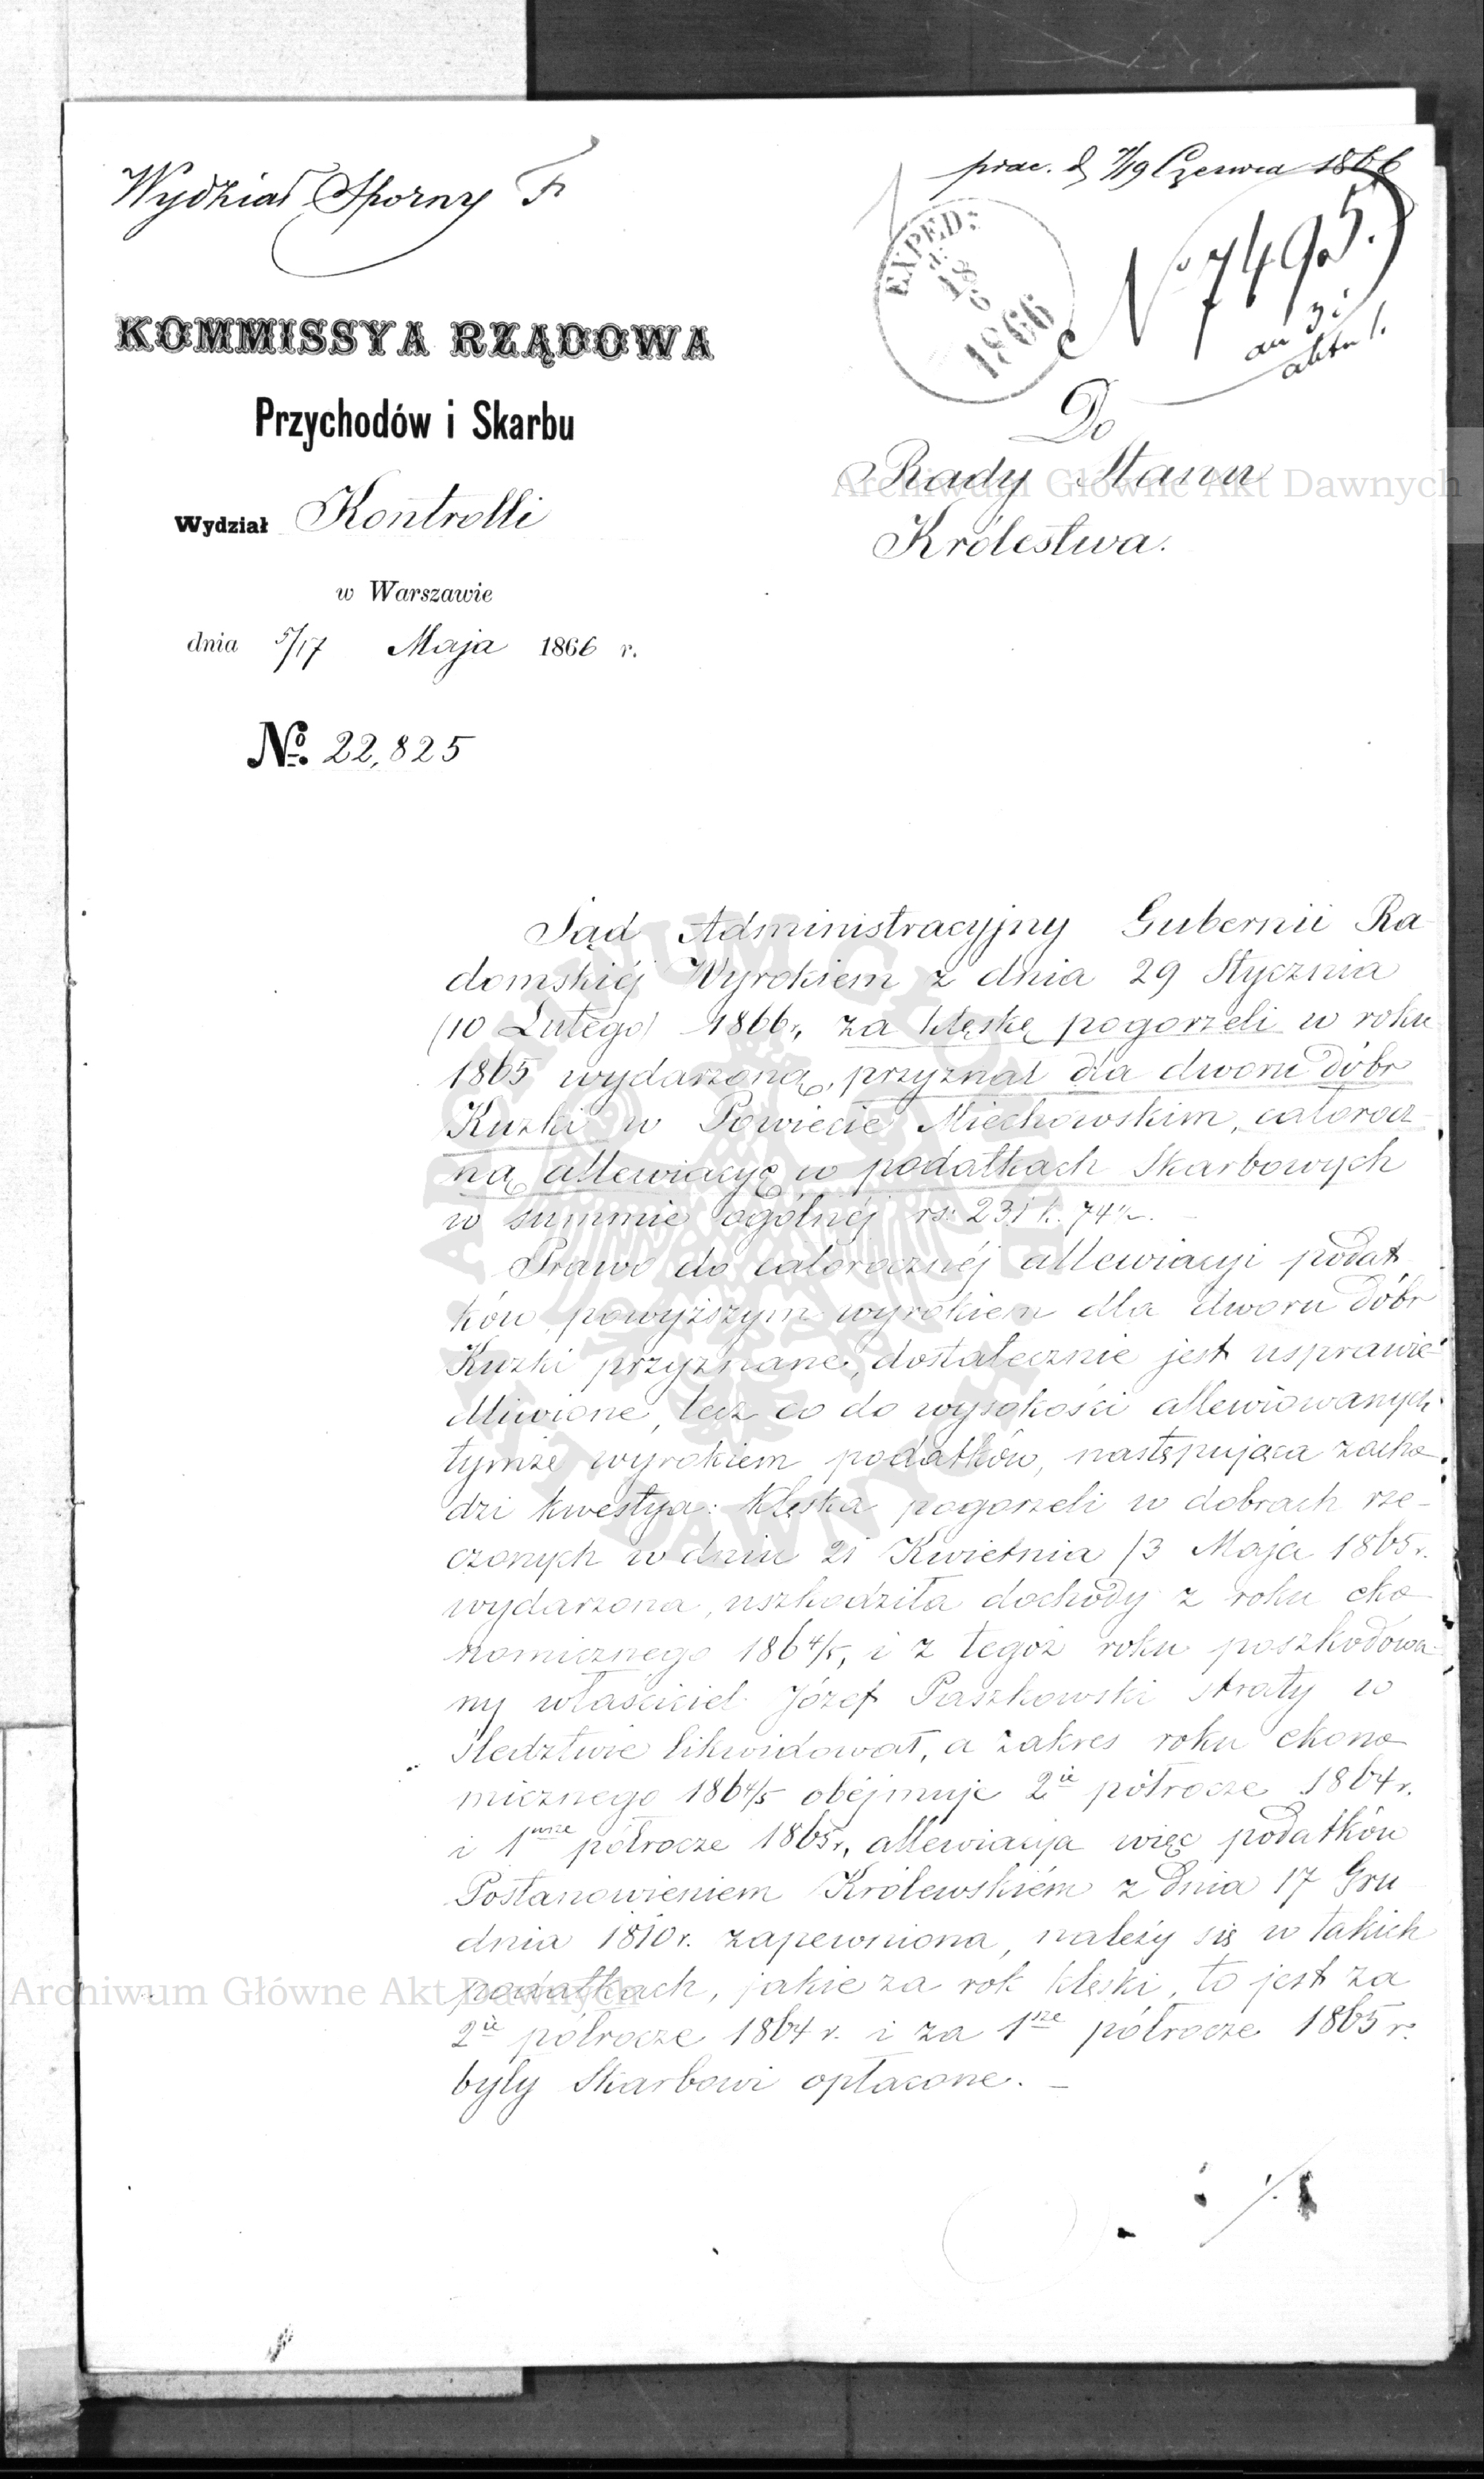 Wydział Sporny F
prae. d 7/19 Czerwca 1866
EXPED:
18/5
1866
No 7495.
KOMMISSYA RZĄDOWA
Przychodów i Skarbu
Wydział Kontrolli
w Warszawie
dnia 5/17 Maja 1866 r.
No. 22,825
Do
Rady Stanu
Królestwa.
Archiwum Główne Akt Dawnych
Sąd Administracyjny Gubernii Ra-
domskiéj Wyrokiem z dnia 29 Stycznia
(10 Lutego) 1866r, za klęskę pogorzeli w roku
1865 wydarzoną, przyznał dla dworu dóbr
Kuzki w Powiecie Miechowskim, całorocz
ną allewiacyę w podatkach Skarbowych
w summie ogólnéj rs: 231 k. 74½.
Prawo do całorocznéj allewiacyi podat
ków powyższym wyrokiem dla dworu dóbr
Kuzki przyznane, dostatecznie jest usprawie-
dliwione, lecz co do wysokości allewiowanych
tymże wyrokiem podatków, następująca zacho-
dzi kwestya: Klęska pogorzeli w dobrach rze-
czonych w dniu 21 Kwietnia /3 Maja 1865r.
wydarzona, uszkodziła dochody z roku eko-
nomicznego 1864/5, i z tegoż roku poszkodowa-
ny właściciel Józef Paszkowski straty w
śledztwie likwidował, a zakres roku ekono-
micznego 1864/5 obéjmuje 2ie półrocze 1864r.
i 1wsze półrocze 1865r, allewiacyja więc podatków
Postanowieniem Królewskiém z dnia 17 Gru
dnia 1810r. zapewniona, należy się w takich
podatkach, jakie za rok klęski, to jest za
2ie półrocze 1864 r. i za 1sze półrocze 1865 r.
były Skarbowi opłacone. –
Archiwum Główne Akt Dawnych
ARCHIWUM GŁÓWNE AKT DAWNYCH